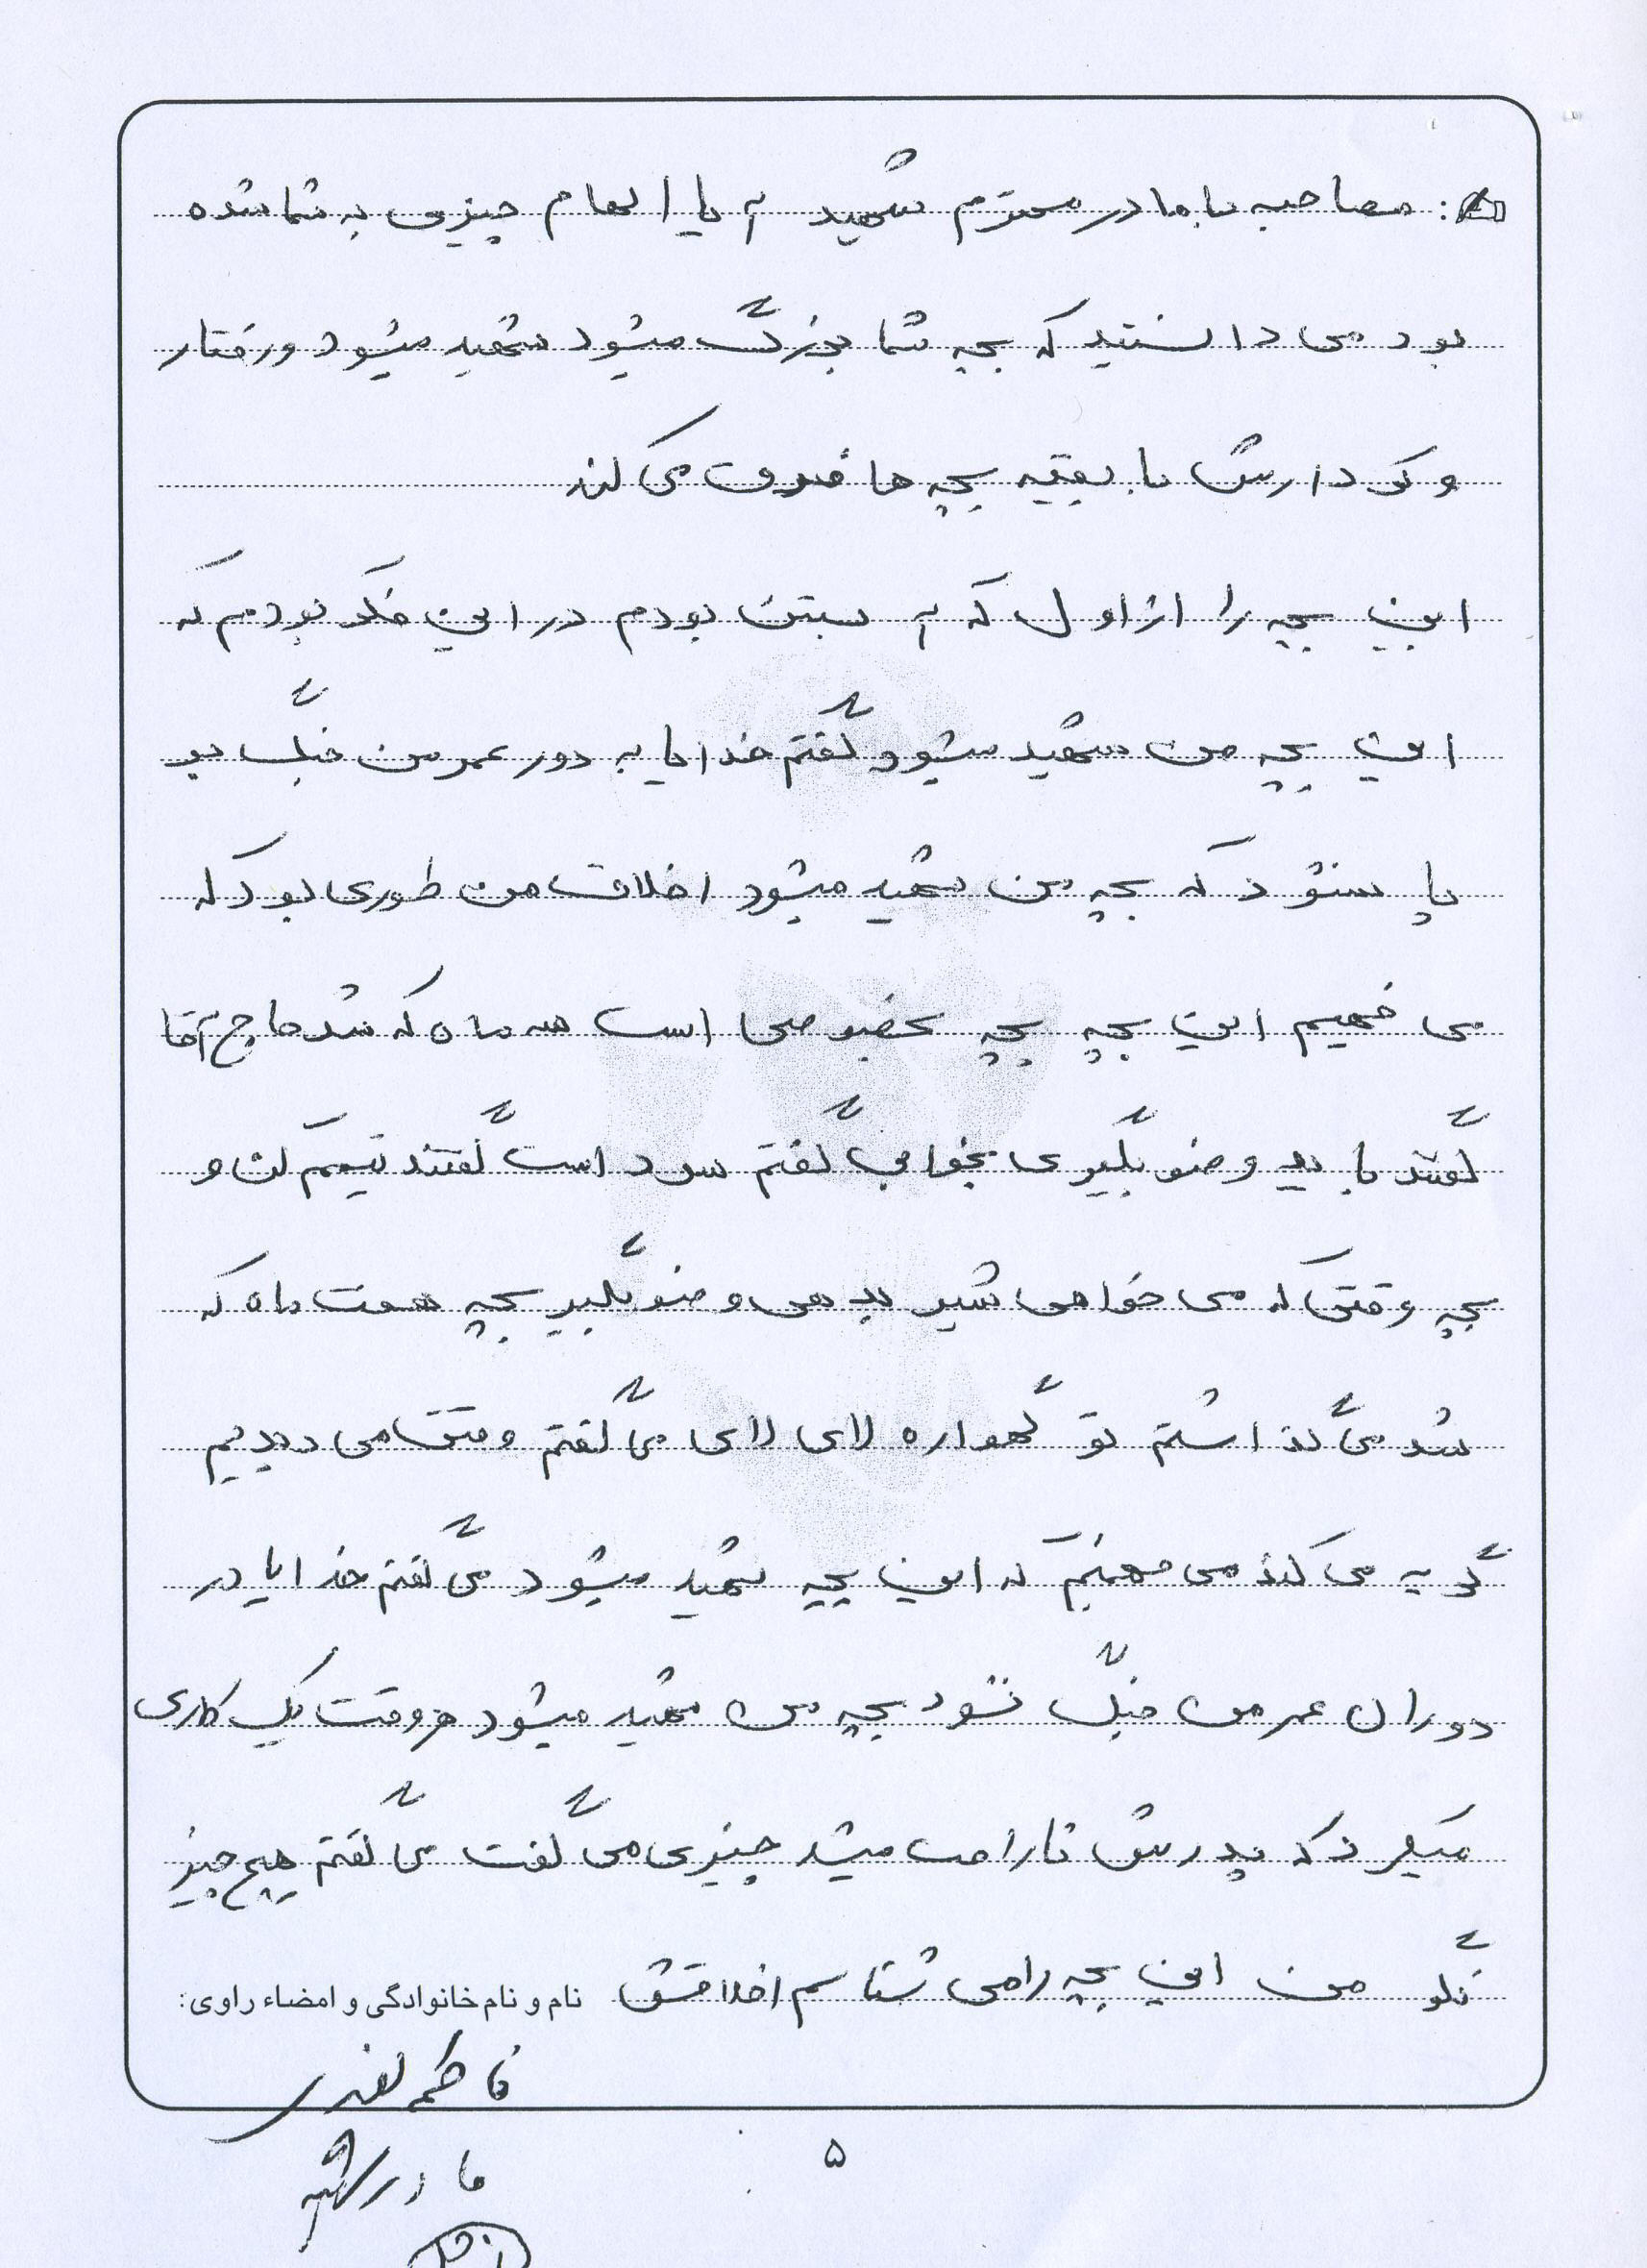 : مصاحبه با مادر محترم شهید آیا الهام چیزی به شما شده
بود می دانستید که بچه شما بزرگ میشود شهید میشود و رفتار
و کردارش با بقیه بچه ها فرق می کند
این بچه را از اول که آبستن بودم در این فکر بودم که
این بچه من شهید میشود و گفتم خدایا به دور عمر من جنگ بر
پا نشود که بچه من شهید میشود اخلاق من طوری بود که
می فهمیم این بچه بچه مخصوصی است سه ماه که شد حاج آقا
گفتند باید وضو بگیری بخوابی گفتم سرد است گفتند تیمم کن و
بچه وقتی که می خواهی شیر بدهی وضو بگیر بچه هفت ماه که
شد می گذاشتم تو گهواره لای لای می گفتم وقتی می دیدیم
گریه می کند می فهمیم که این بچه شهید میشود می گفتم خدایا در
دوران عمر من جنگ نشود بچه من شهید میشود هر وقت یک کاری
میکرد که پدرش ناراحت میشد چیزی می گفت می گفتم هیچ چیز
نگو من این بچه را می شناسم اخلاقش نام و نام خانوادگی و امضاء راوی:
فاطمه
مادر شهید
۵